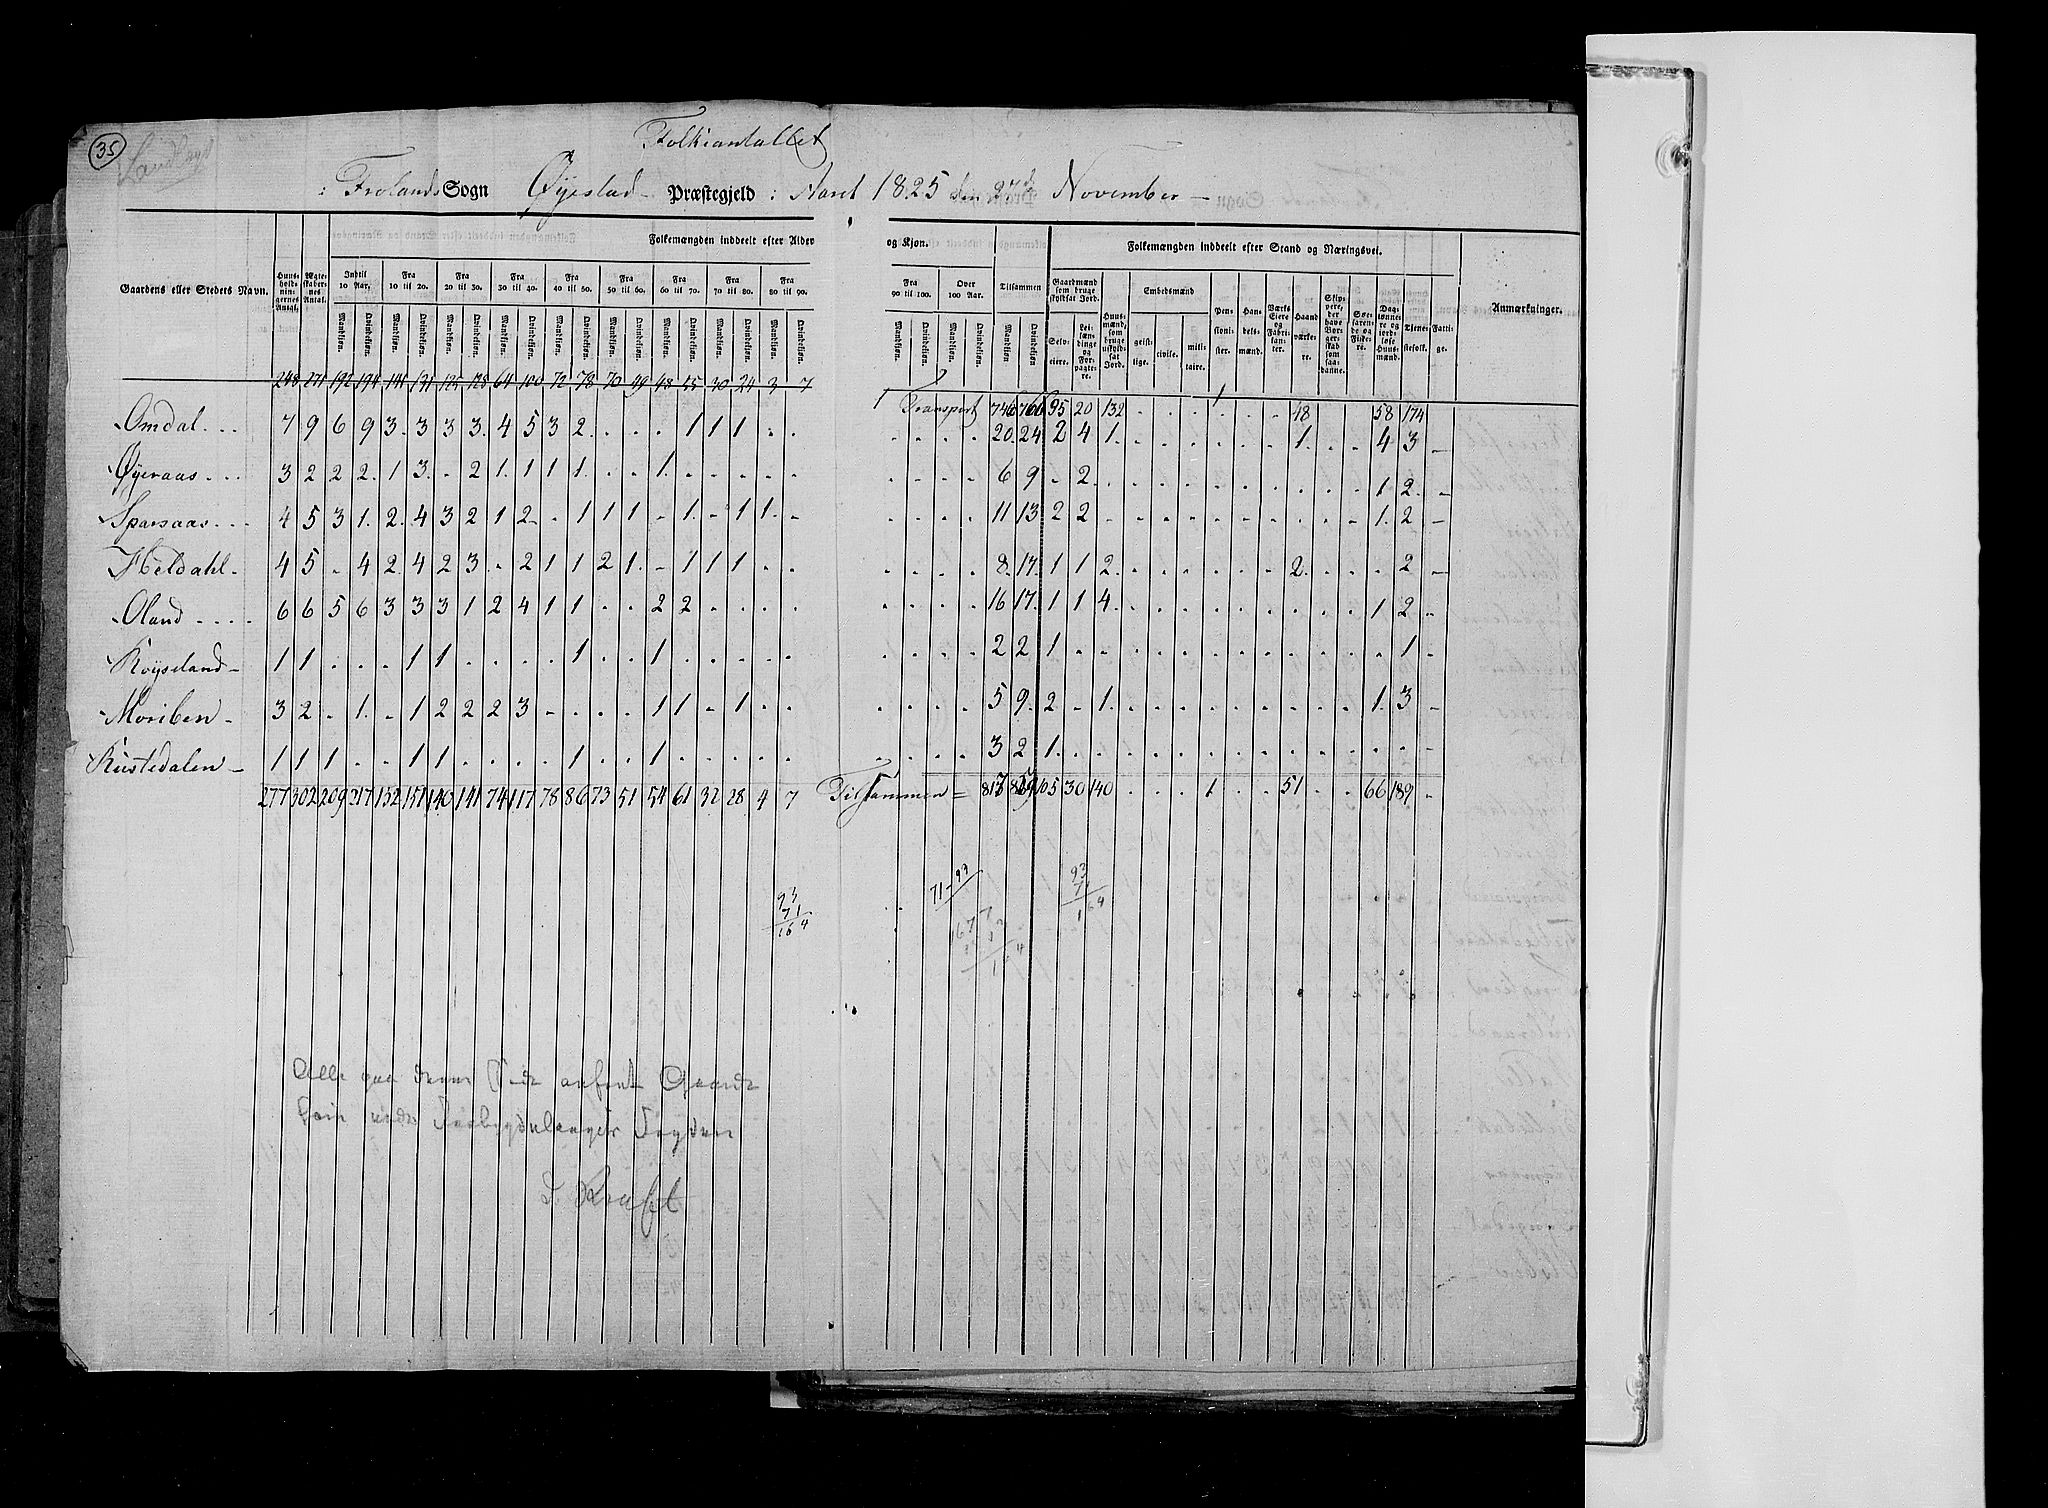 35
Folkeantallet
i Frolands Sogn Øyestad Præstegjeld i Aaret 1825 den 27de November
Gaardens eller Stedets Navn. Huusholdningernes Antal. Ægteskabernes Antal. Folkemængden inddeelt efter Alder og Kjøn. Tilsammen Folkemængden inddeelt efter Stand og Næringsvei. Anmærkninger.
Indtil 10 Aar. Fra 10 til 20. Fra 20 til 30. Fra 30 til 40. Fra 40 til 50. Fra 50 til 60. Fra 60 til 70. Fra 70 til 80. Fra 80 til 90. Fra 90 til 100. Over 100 Aar.
Gaardmænd som bruge skyldsat Jord. Selveiere. Leilændinge og Forpagtere. Huusmænd, som bruge uskyldsat Jord. Embedsmænd geistlige. civile. militaire. Pensionister. Handelsmænd. Værks Eiere og Fabrikanter. Haandværkere. Skippere, der have Borgerskab som saadanne. Søefarende og Fiskere. Daglønnere og jordløse Huusmænd. Tjenestefolk. Fattige.
Mandkiøn. Qvindekiøn.
248 271 192 194 141 131 125 128 64 100 72 78 70 49 48 55 30 24 3 7 Transport 746 766 95 20 132 . . . 1 . . 48 . . 58 174
Omdal 7 9 6 9 3 3 3 3 4 5 3 2 . . . 1 1 1 . . . . . . 20 24 2 4 1 . . . . . . 1 . . 4 3 -
Øyeraas 3 2 2 2 1 3 - 2 1 1 1 1 . . 1 . . . . . . . . . 6 9 - 2 . . . . . . . . . . 1 2 -
Sparsaas 4 5 3 1 2 4 3 2 1 2 - 1 1 1 - 1 - 1 1 - . . . . 11 13 2 2 . . . . . . . . . . 1 2 -
Heldahl 4 5 - 4 2 4 2 3 - 2 1 1 2 1 - 1 1 1 . . . . . . 8 17 1 1 2 . . . . . . 2 . . . 2 -
Oland 6 6 5 6 3 3 3 1 2 4 1 1 . . 2 2 . . . . . . . . 16 17 1 1 4 . . . . . . . . . 1 2 -
Röyseland 1 1 . . . 1 1 . . . . 1 . . 1 . . . . . . . . . 2 2 1 . . . . . . . . . . . . 1 -
Moriben 3 2 - 1 - 1 2 2 2 3 - . . . 1 1 - 1 . . . . . . 5 9 2 - 1 . . . . . . . . . 1 3 -
Rustedalen 1 1 1 . . 1 1 . . . . 1 . . 1 . . . . . . . . . 3 2 1 . . . . . . . . . . . . . -
277 302 209 217 152 151 140 141 74 117 78 86 73 51 54 61 32 28 4 7 Tilsammen = 817 859 105 30 140 . . . 1 . . 51 . . 66 189 -
93
71
164
71-93
93
71
164
Alle paa denne Side anført Gaarde
d. Kraft